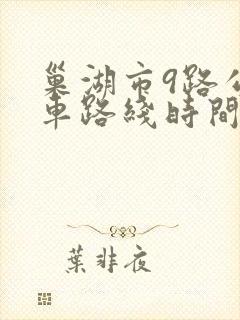 巢湖市9路公
車路綫時間
葉非夜